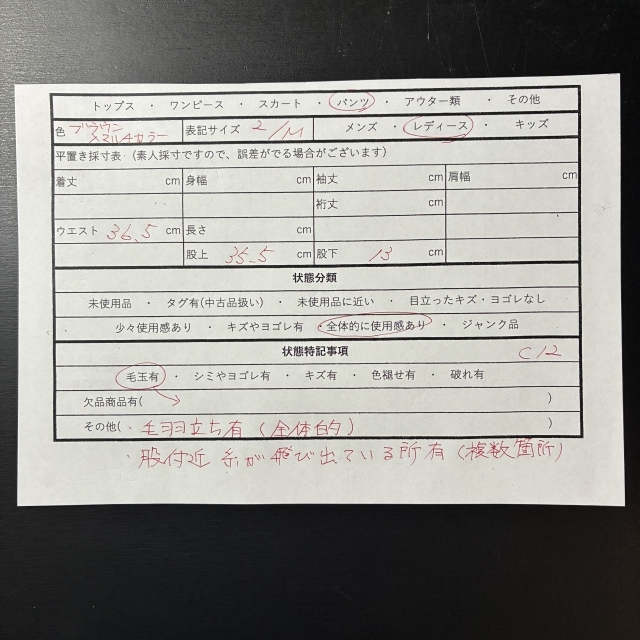 トップス ・ ワンピース ・ スカート ・ パンツ ・ アウター類 ・ その他
色 ブラウン 表記サイズ 2/M メンズ ・ レディース ・ キッズ
×マルチカラー
平置き採寸表(素人採寸ですので、誤差がでる場合がございます)
着丈 cm 身幅 cm 袖丈 cm 肩幅 cm
裄丈 cm
ウエスト 36.5 cm 長さ cm
股上 35.5 cm 股下 13 cm
状態分類
未使用品 ・ タグ有(中古品扱い) ・ 未使用品に近い ・ 目立ったキズ・ヨゴレなし
少々使用感あり ・ キズやヨゴレ有 ・ 全体的に使用感あり ・ ジャンク品
状態特記事項 C12
毛玉有 ・ シミやヨゴレ有 ・ キズ有 ・ 色褪せ有 ・ 破れ有
欠品商品有( )
その他( ・毛羽立ち有(全体的) )
・股付近 糸が飛び出ている所有(複数箇所)